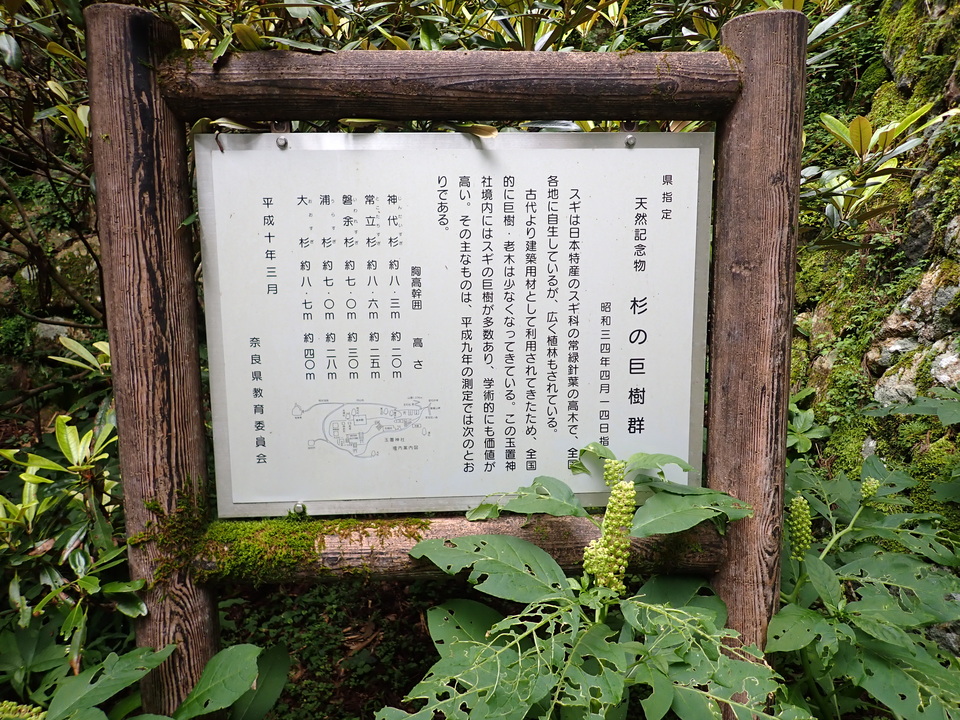 県指定
天然記念物　杉の巨樹群
昭和三四年四月一四日指
スギは日本特産のスギ科の常緑針葉の高木で、全国
各地に自生しているが、広く植林もされている。
古代より建築用材として利用されてきたため、全国
的に巨樹・老木は少なくなってきている。この玉置神
社境内にはスギの巨樹が多数あり、学術的にも価値が
高い。その主なものは、平成九年の測定では次のとお
りである。
胸高幹囲　高さ
神代杉　約八・三m　約二〇m
常立杉　約八・六m　約二五m
磐余杉　約七・〇m　約三〇m
浦杉　約七・〇m　約二八m
大杉　約八・七m　約四〇m
平成十年三月
奈良県教育委員会
玉置神社
境内案内図